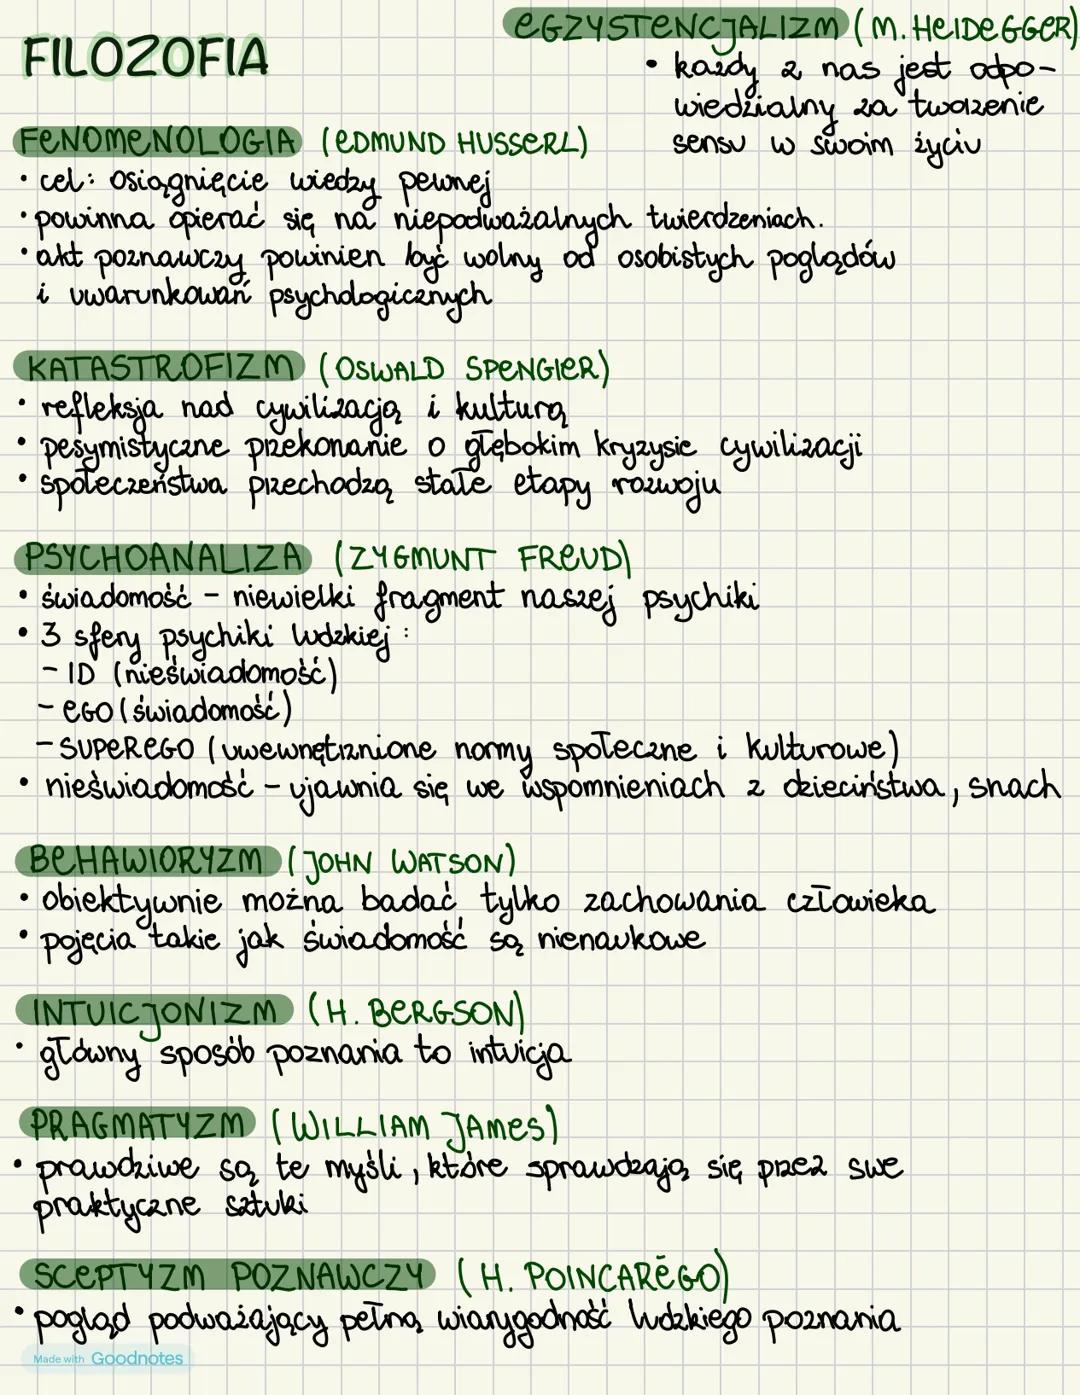 FILOZOFIA
EGZYSTENCJALIZM (M. HEIDEGGER)
• każdy z nas jest odpo-
wiedzialny za tworzenie
sensu w swoim życiu
FENOMENOLOGIA (EDMUND HUSSERL)
• cel: osiągnięcie wiedzy pewnej
• powinna opierać się na niepodważalnych twierdzeniach.
• akt poznawczy powinien być wolny od osobistych poglądów
i uwarunkowań psychologicznych
KATASTROFIZM (OSWALD SPENGlER)
• refleksja nad cywilizacją i kulturą
• pesymistyczne przekonanie o głębokim kryzysie cywilizacji
• społeczeństwa przechodzą stałe etapy rozwoju
PSYCHOANALIZA (ZYGMUNT FREUD)
• świadomość – niewielki fragment naszej psychiki
• 3 sfery psychiki ludzkiej :
– ID (nieświadomość)
– EGO (świadomość)
– SUPEREGO (uwewnętrznione normy społeczne i kulturowe)
• nieświadomość – ujawnia się we wspomnieniach z dzieciństwa, snach
BEHAWIORYZM (JOHN WATSON)
• obiektywnie można badać tylko zachowania człowieka
• pojęcia takie jak świadomość są nienaukowe
INTUICJONIZM (H. BERGSON)
• główny sposób poznania to intuicja
PRAGMATYZM (WILLIAM JAMES)
• prawdziwe są te myśli, które sprawdzają się przez swe
praktyczne sztuki
SCEPTYZM POZNAWCZY (H. POINCARĒGO)
• pogląd podważający pełną wiarygodność ludzkiego poznania
Made with Goodnotes